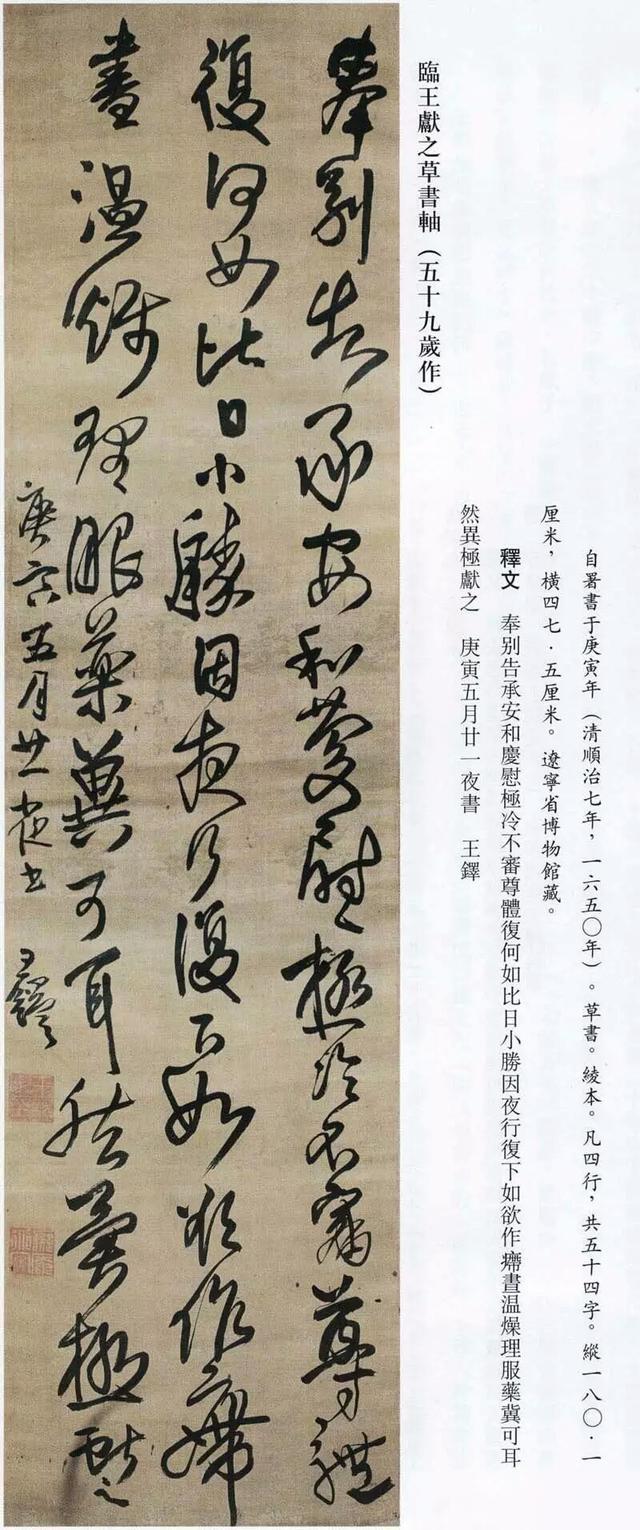 臨王獻之草書軸（五十九歲作）
自署書于庚寅年（清順治七年，一六五〇年）。草書。綾本。凡四行，共五十四字。縱一八〇·一
厘米，橫四七·五厘米。遼寧省博物館藏。
釋文　奉别告承安和慶慰極冷不審尊體復何如比日小勝因夜行復下如欲作㿃晝温燥理服藥冀可耳
然異極獻之　庚寅五月廿一夜書　王鐸
奉别告承安和慶慰極冷不審尊體
復何如比日小勝因夜行復下如欲作㿃
晝温燥理服藥冀可耳然異極獻之
庚寅五月廿一夜書　王鐸